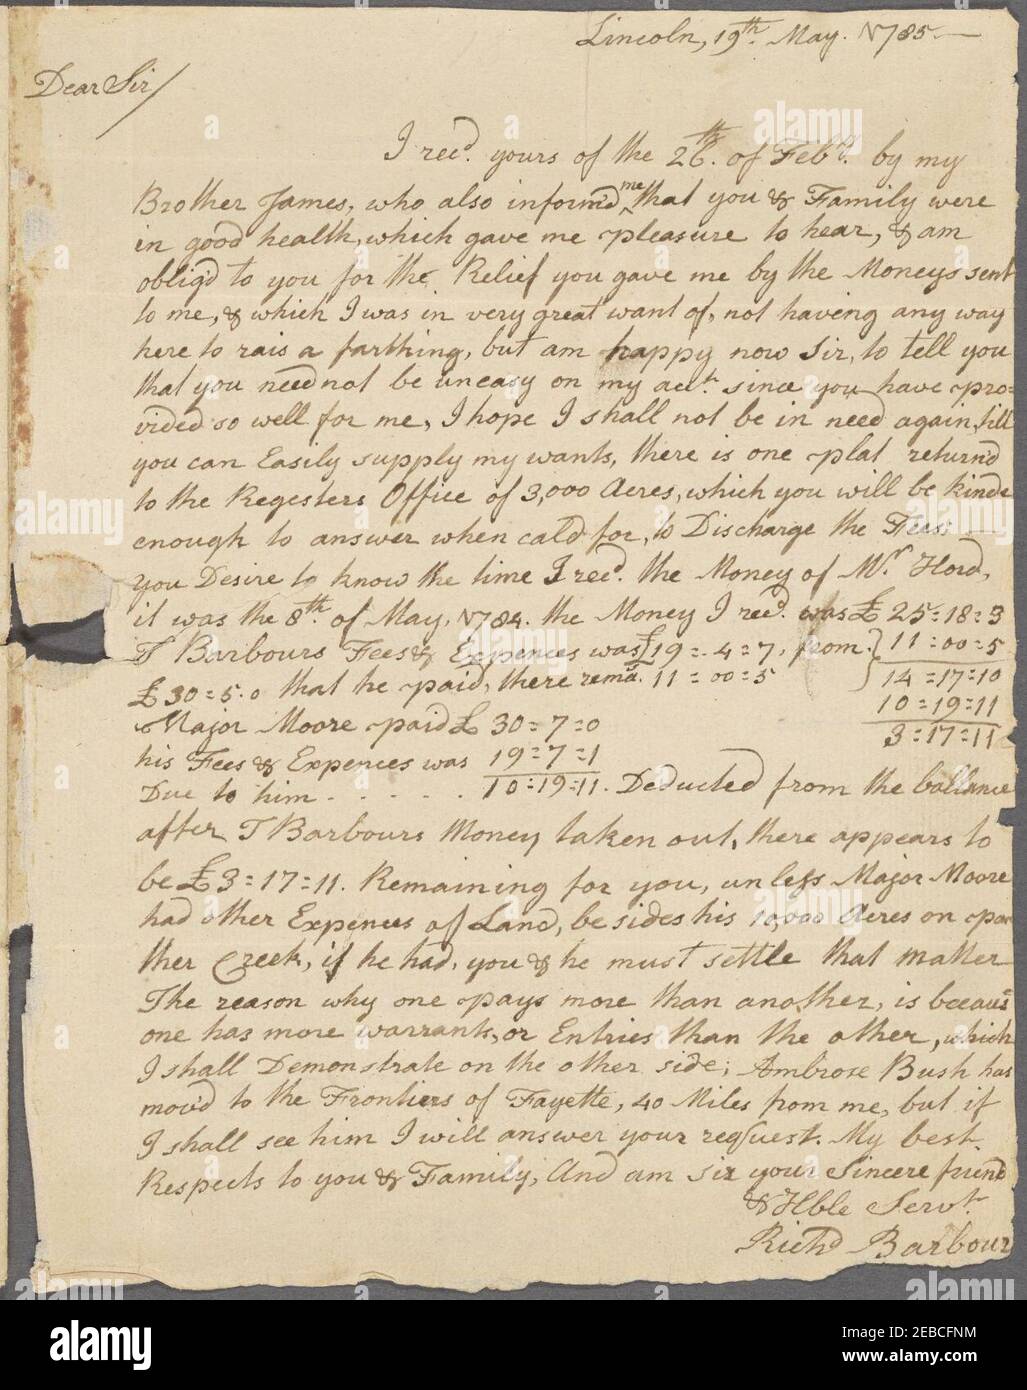 Lincoln, 19th. May. 1785—
Dear Sir/
I rec'd. yours of the 26th. of Feby. by my
Brother James, who also inform'd me that you & Family were
in good health, which gave me pleasure to hear, & am
oblig'd to you for the Relief you gave me by the Moneys sent
to me, & which I was in very great want of, not haveing any way
here to rais a farthing, but am happy now Sir, to tell you
that you need not be uneasy on my acct. since you have pro=
vided so well for me, I hope I shall not be in need again, till
you can Easily supply my wants, there is one plat return'd
to the Regesters Office of 3,000 Acres, which you will be kinde
enough to answer when cal'd for, to Discharge the Fees: —
you Desire to know the time I rec'd. the Money of Mr. Hord,
it was the 8th. of May, 1784. the Money I rec'd. was £ 25=18=3
T Barbours Fees & Expences was £19=4=7, from } 11=00=5
£30=5.0 that he paid, there rema. 11=00=5 14=17=10
Major Moore paid £ 30=7=0 10=19=11
his Fees & Expences was 19=7=1 3=17=11
Due to him . . . . . 10=19=11. Deducted from the ballance
after T Barbours Money taken out, there appears to
be £3=17=11. Remaining for you, unless Major Moore
had other Expences of Land, besides his 10,000 Acres on pan
ther Creek, if he had, you & he must settle that matter
The reason why one pays more than another, is becaus
one has more warrants, or Entries than the other, which
I shall Demonstrate on the other side; Ambrose Bush has
mov'd to the Frontiers of Fayette, 40 Miles from me, but if
I shall see him I will answer your request. My best
Respects to you & Family, And am Sir your Sincere friend
& Hble Servt.
Richd Barbour
alamy
www.alamy.com
Image ID: 2EBCFNM